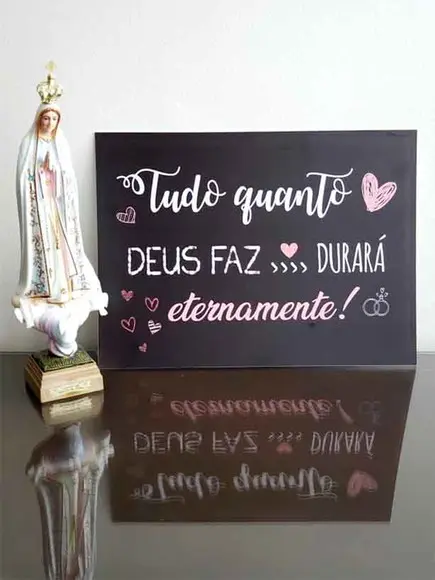 Tudo quanto
DEUS FAZ ,,,, DURARÁ
eternamente!